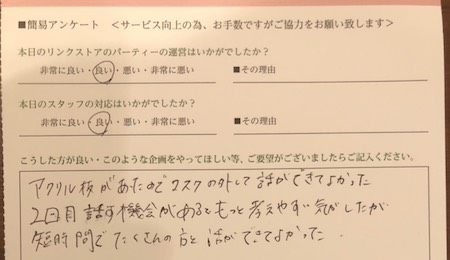 ■簡易アンケート <サービス向上の為、お手数ですがご協力をお願い致します>
本日のリンクストアのパーティーの運営はいかがでしたか?
非常に良い・良い・悪い・非常に悪い ■その理由
本日のスタッフの対応はいかがでしたか?
非常に良い・良い・悪い・非常に悪い ■その理由
こうした方が良い・このような企画をやってほしい等、ご要望がございましたらご記入ください。
アクリル板があたのでマスクの外して話ができてよかった
2回目 話す機会があるともっと考えやすい気がしたが
短時間でたくさんの方と話ができてよかった.